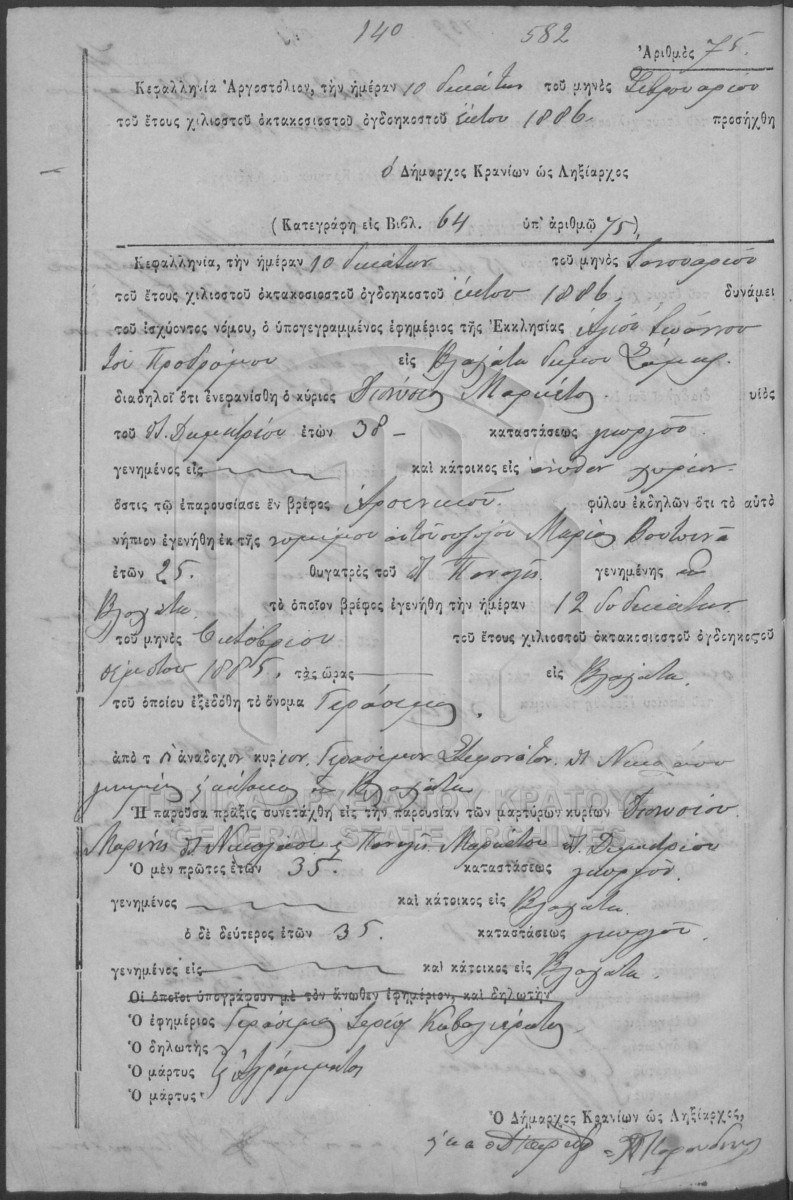 140 582
Ἀριθμὸς 75.
Κεφαλληνία Ἀργοστόλιον, τὴν ἡμέραν 10 δεκάτην τοῦ μηνὸς Φεβρουαρίου
τοῦ ἔτους χιλιοστοῦ ὀκτακοσιοστοῦ ὀγδοηκοστοῦ ἕκτου 1886. προσήχθη
ὁ Δήμαρχος Κρανίων ὡς Ληξίαρχος
(Κατεγράφη εἰς Βιβλ. 64 ὑπ' ἀριθμῷ 75),
Κεφαλληνία, τὴν ἡμέραν 10 δεκάτην τοῦ μηνὸς Ἰανουαρίου
τοῦ ἔτους χιλιοστοῦ ὀκτακοσιοστοῦ ὀγδοηκοστοῦ ἕκτου 1886, δυνάμει
τοῦ ἰσχύοντος νόμου, ὁ ὑπογεγραμμένος ἐφημέριος τῆς Ἐκκλησίας Ἁγίου Ἰωάννου
τοῦ Προδρόμου εἰς Βλαχάτα δήμου Σάμης.
διαδηλοῖ ὅτι ἐνεφανίσθη ὁ κύριος Διονύσιος Μαρκέτος. υἱὸς
τοῦ Δημητρίου ἐτῶν 38 – καταστάσεως γεωργοῦ.
γενημένος εἰς καὶ κάτοικος εἰς ἄνωθεν χωρίον.
ὅστις τῷ ἐπαρουσίασε ἓν βρέφος Ἀρσενικοῦ. φύλου ἐκδηλῶν ὅτι τὸ αὐτὸ
νήπιον ἐγενήθη ἐκ τῆς νομίμου αὐτοῦ συζύγου Μαρίας Βουτσινᾶ
ἐτῶν 25. θυγατρὸς τοῦ Παναγῆ. γενημένης εἰς
Βλαχάτα. τὸ ὁποῖον βρέφος ἐγενήθη τὴν ἡμέραν 12 δωδεκάτην
τοῦ μηνὸς Ὀκτωβρίου τοῦ ἔτους χιλιοστοῦ ὀκτακοσιοστοῦ ὀγδοηκοστοῦ
πέμπτου 1885. τὰς ὥρας εἰς Βλαχάτα.
τοῦ ὁποίου ἐξεδόθη τὸ ὄνομα Γεράσιμος.
ἀπὸ τὸν ἀνάδοχον κύριον. Γεράσιμον Στεφανάτον. Νικολάου
γενημένος κ κάτοικος εἰς Βλαχάτα
ΓΕΝΙΚΑ ΑΡΧΕΙΑ ΤΟΥ ΚΡΑΤΟΥΣ
Ἡ παροῦσα πρᾶξις συνετάχθη εἰς τὴν παρουσίαν τῶν μαρτύρων κυρίων Διονυσίου
GENERAL STATE ARCHIVES
Μαρίνη Νικολάου κ Παναγῆ Μαρκέτου Δημητρίου
Ὁ μὲν πρῶτος ἐτῶν 35. καταστάσεως γεωργοῦ.
γενημένος καὶ κάτοικος εἰς Βλαχάτα.
ὁ δὲ δεύτερος ἐτῶν 35. καταστάσεως γεωργοῦ.
γενημένος εἰς καὶ κάτοικος εἰς Βλαχάτα.
Οἱ ὁποῖοι ὑπογράφουν μὲ τὸν ἄνωθεν ἐφημέριον, καὶ δηλωτὴν
Ὁ ἐφημέριος Γεράσιμος Ἱερεὺς Καβαλιεράτος.
Ὁ δηλωτὴς
Ὁ μάρτυς Ἀγράμματοι
Ὁ μάρτυς
Ὁ Δήμαρχος Κρανίων ὡς Ληξίαρχος,